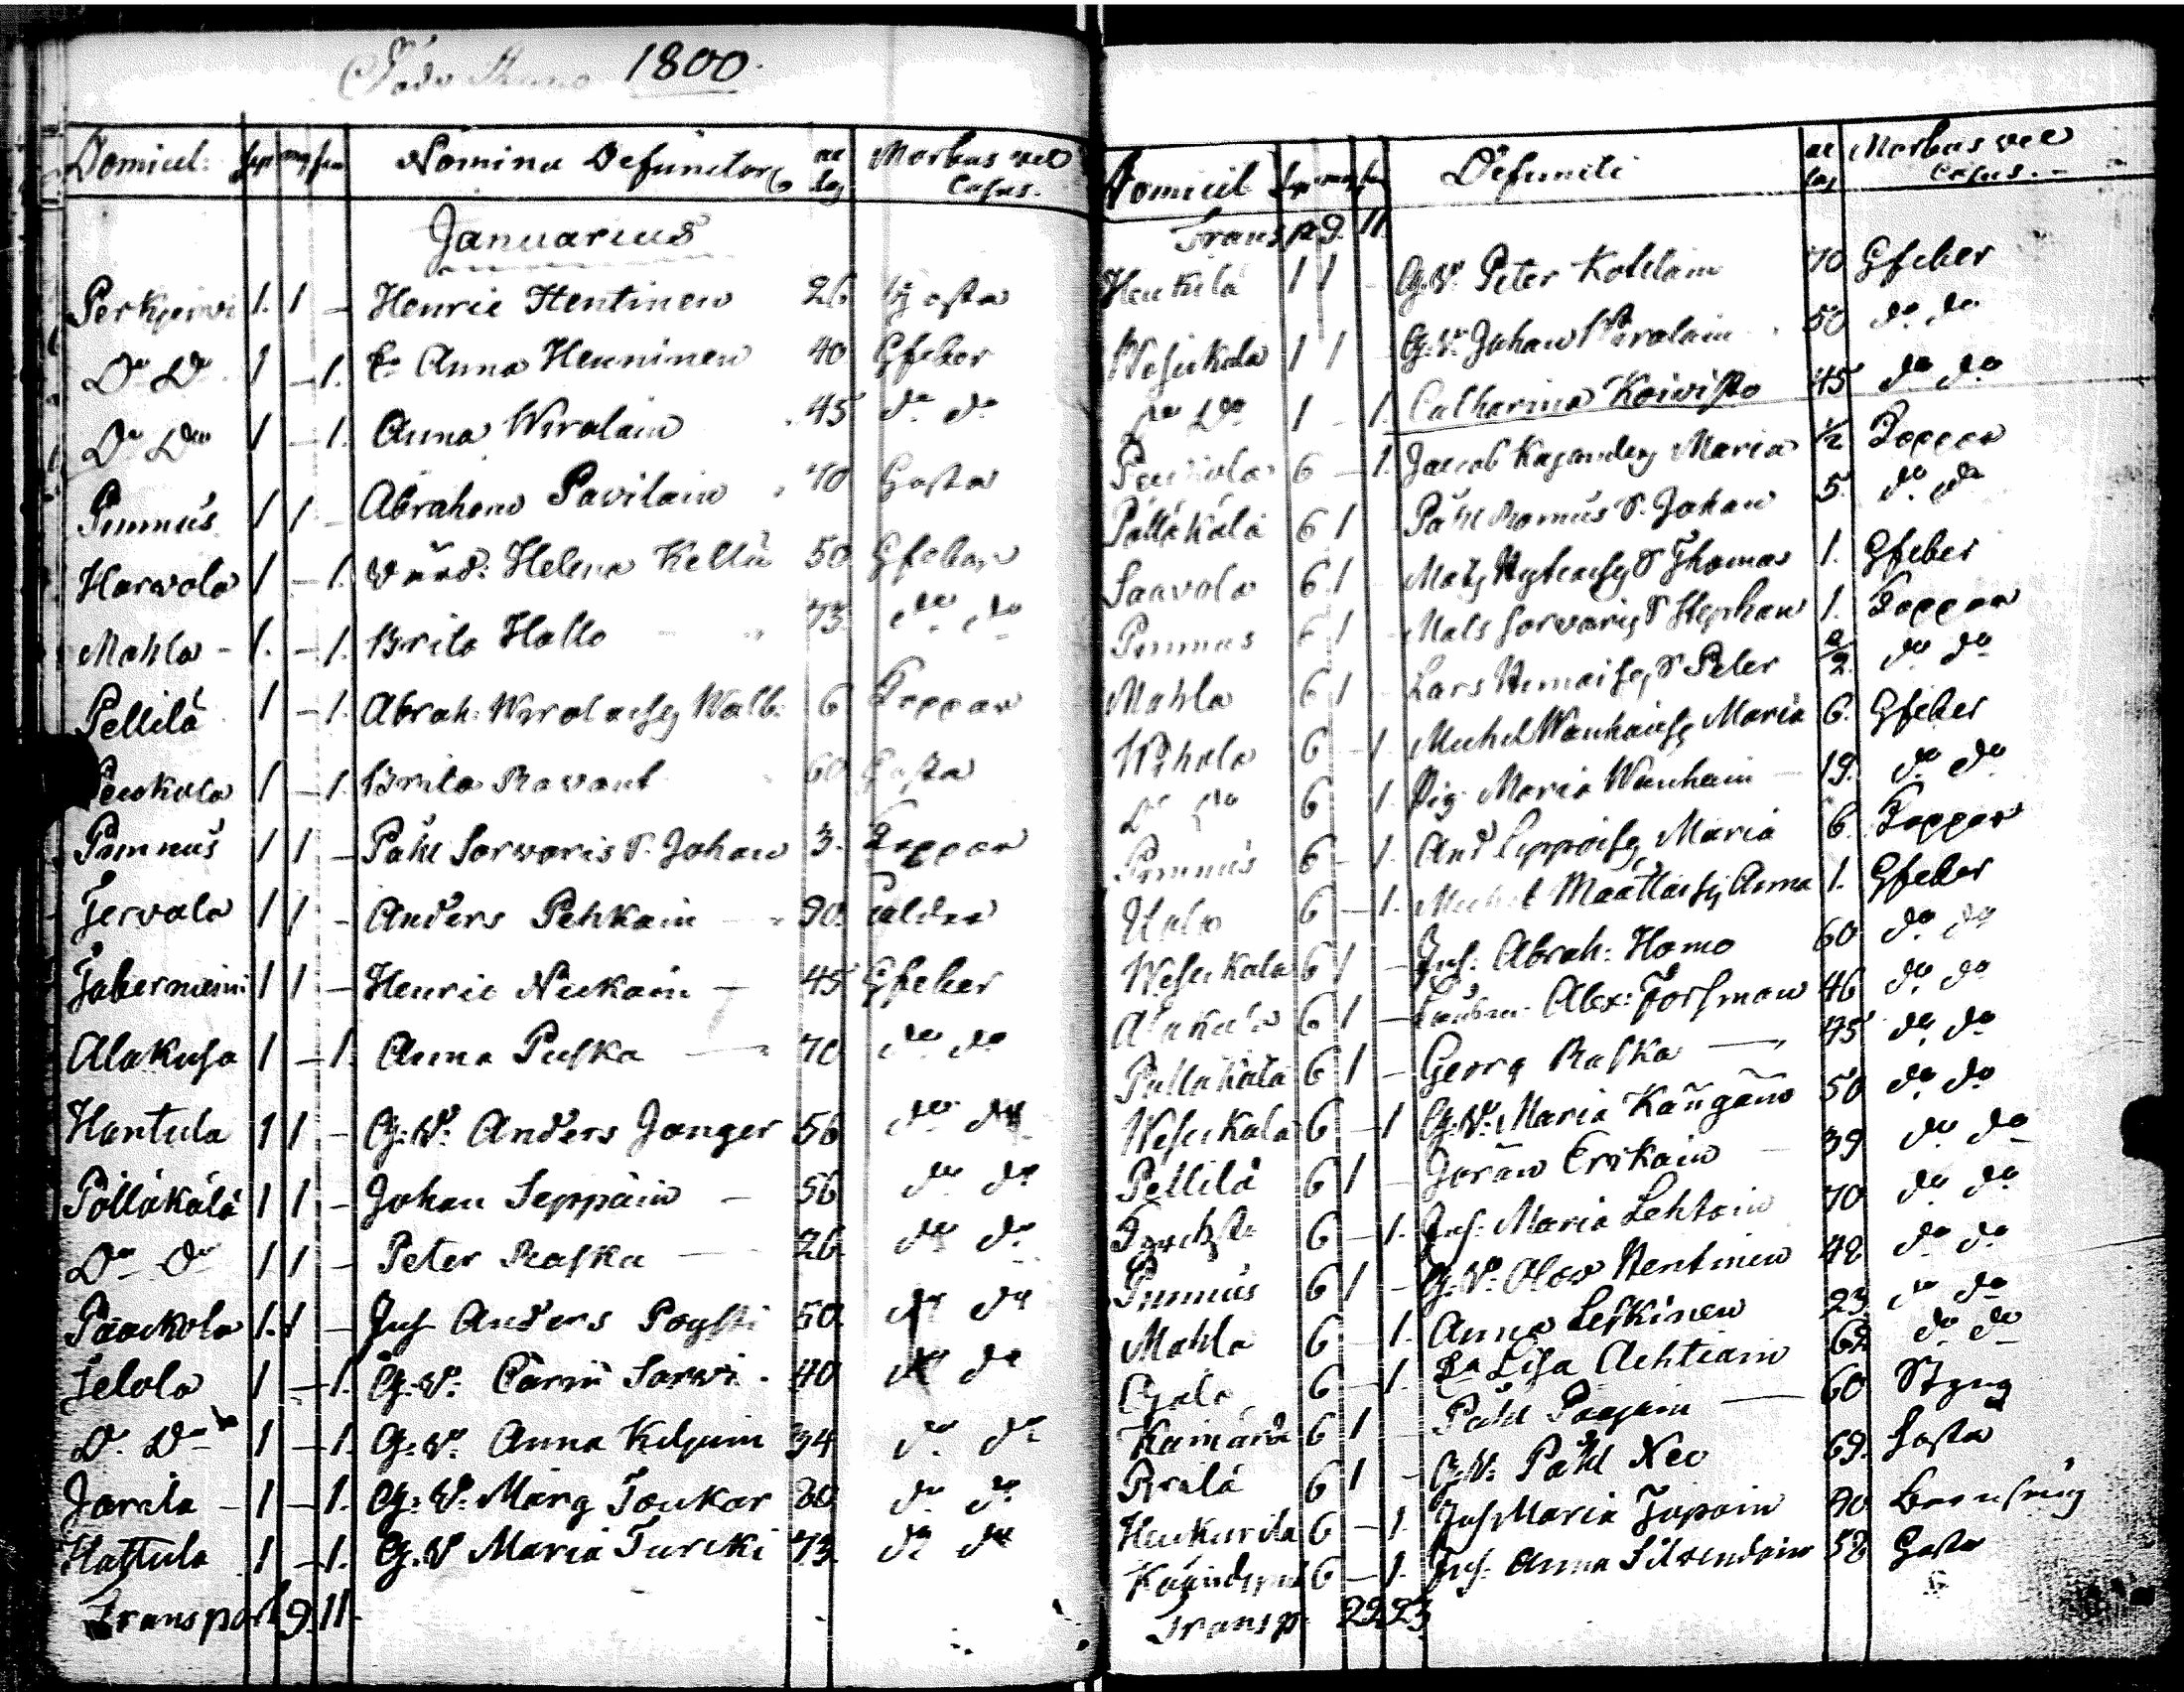 Anno 1800.
Domicil: Sep m f Nomina Defunctor ae tas Morbus vel Casus.
Januarius
Perkjervi 1. 1 – Henric Hentinen 26 Hosta
Do Do 1 – 1. Eo Anna Henninen 40 Gfeber
Do Do 1 – 1. Anna Wirolain 45 do do
Pummus 1 1 – Abraham Pavilain 70 Hosta
Harvola 1 – 1. Helena Kellä 50 Gfeber
Mahla – 1. – 1. Brita Hallo 73. do do
Pellilä 1 – 1. Abrah: Wirolaisg Walb: 6 Koppor
Penkola 1 – 1. Brita Ravant 60 Hosta
Pummus 1 1 – Påhl Sorvaris S. Johan 3. Koppor
Jervola 1 1 – Anders Pehkain 90. ålder
Tabermeini 1 1 – Henric Nickain – 45 Gfeber
Alakusa 1 – 1. Anna Puska 70 do do
Hantula 1 1 – G:V: Anders Janger 56 do do
Pölläkälä 1 1 – Johan Seppäin – 56 do do
Do Do 1 1 – Peter Raska 26. do do
Paackola 1. 1 – Inh Anders Poysti 50. do do
Ilola 1 – 1. G:V: Carin Sarvi . 40 do do
Do Do 1 – 1. G:V: Anna Kiljuin 34 do do
Jarila – 1 – 1. G:V: Marg Toukar 30 do do
Hattula 1 – 1. G:V Maria Turcki 73. do do
Transport 9. 11.
Domicil Sep m f Defuncti ae tas Morbus vel Casus. –
Transp 9. 11.
Heukilä 1 1 – G:V: Peter Kohlain 70 Gfeber
Wesikola 1 1 – G:V: Johan Wirolain 50 do do
Do Do 1 – 1. Catharina Koivisto 45 do do
Penkola 6 – 1. Jacob Kajanders Maria ½ Koppor
Pölläkälä 6 1 Påhl Romus S. Johan 5. do do
Saavola 6 1 – S Thomas 1. Gfeber
Pummus 6 1 – Mats Sorvaris S Stephan 1. Koppor
Mahla 6 1 – Lars S Peter do do
6 – 1. Michel Wanhaisg Maria 6. Gfeber
Do Do 6 1. Pig Maria Wanhain – 19. do do
Pummus 6 – 1. And Seppäisg Maria 6. Koppor
6 – 1. Michel Maattaisg Anna 1. Gfeber
Wesikola 6 1 – Inh: Abrah: Homo 60 do do
Alakusa 6 1 – Alex: Forsman 46 do do
Pölläkälä 6 1 – Georg Raska 45 do do
Wesikala 6 – 1 G:V: Maria Kangano 50 do do
Pellilä 6 1 – Joran Erikain – 39 do do
6 – 1. Inh: Maria Lehtoin 70 do do
Pummus 6 1 – G:V: Olow Hentinen 42 do do
Mahla 6 – 1. Anna Leskinen 23 do do
6 – 1. Eo Lisa Achtiain 62 do do
Kamärä 6 1 – Påhl 60 Styng
6 1 – G:V: Påhl Neo 69. Hosta
Heukurila 6 – 1. Inh Maria Japoin 40
6 – 1. Inh: Anna Silvendoin 52 Hosta
Transp: 22. 23.